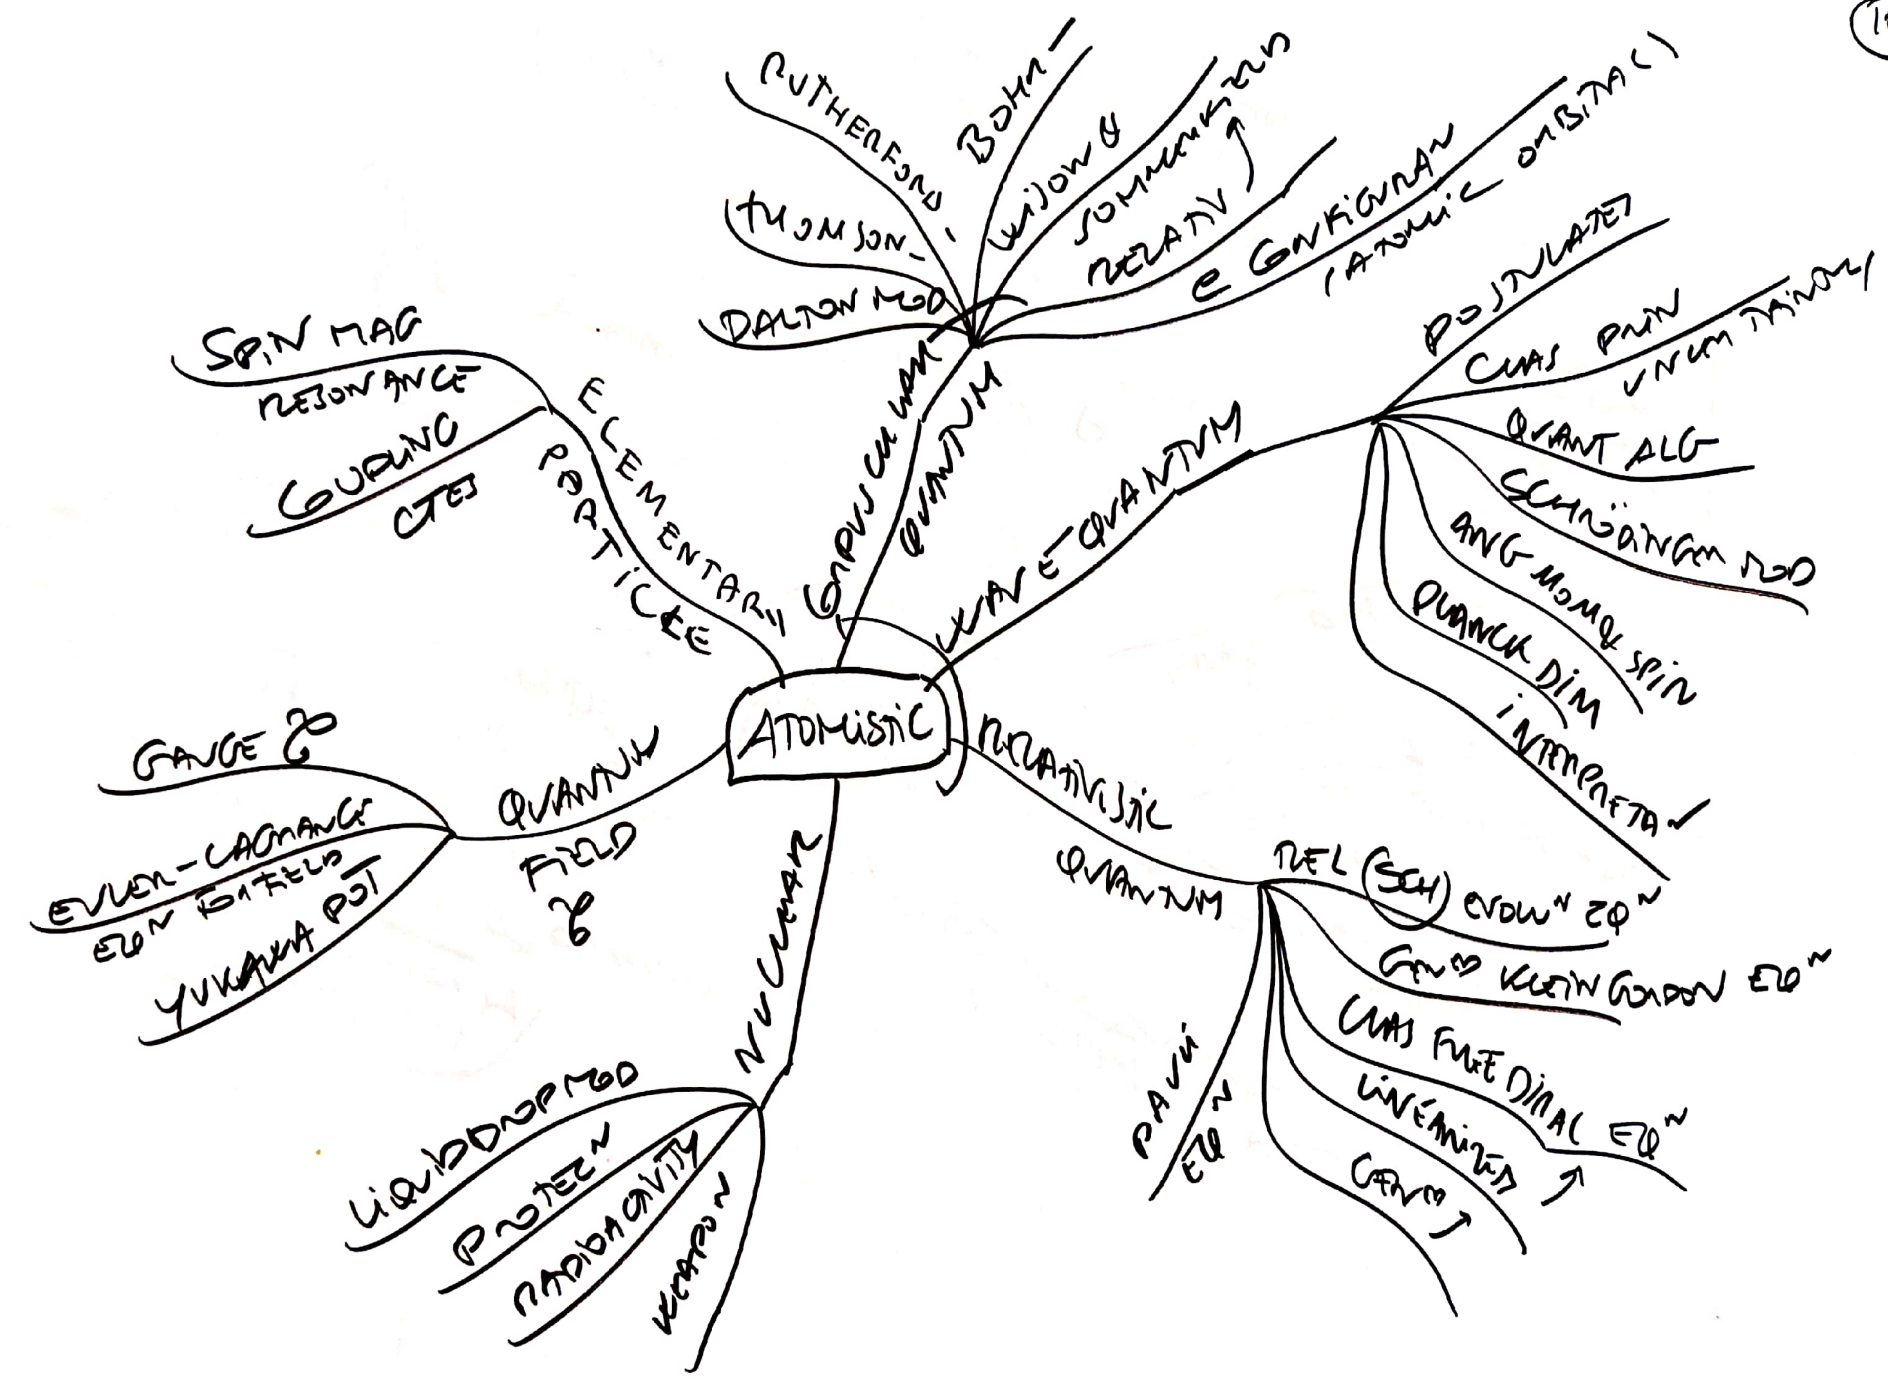 ATOMISTIC
CORPUSCULAR
QUANTUM
DALTON MOD
THOMSON
RUTHERFORD
BOHR
WILSON &
SOMMERFELD
RELATIV
e CONFIGURAN
(ATOMIC ORBITAL)
WAVE QUANTUM
POSTULATES
CLAS PRIN
UNCERTAINTY
QUANT ALG
SCHRÖDINGER MOD
ANG MOM & SPIN
PLANCK DIM
INTERPRETAN
RELATIVISTIC
QUANTUM
REL (SCH) EVOLUN EQN
GEN KLEIN GORDON EQN
CLAS FREE DIRAC EQN
LINEARIZED
GEN
PAULI
EQN
NUCLEAR
LIQUID DROP MOD
PROTECN
RADIOACTIVITY
WEAPON
QUANTUM
FIELD
GAUGE
EULER-LAGRANGE
EQN FOR FIELD
YUKAWA POT
ELEMENTARY
PARTICLE
SPIN MAG
RESONANCE
COUPLING
CTES